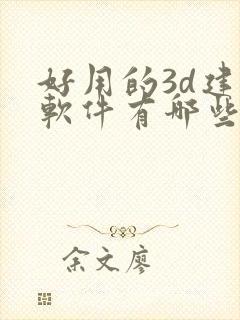 好用的3d建
軟件有哪些
余文廖